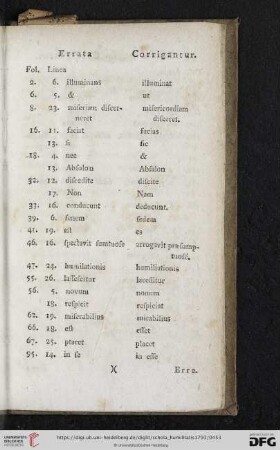 Errata Corrigantur.
Fol. Linea
2. 6. illuminans illuminat
6. 5. & ut
8. 23. miserium discer- misericordiam
neret disceret.
16. 11. faciat facias
13. si sic
18. 4. nec &
13. Absolon Absalon
32. 12. discessite discite
17. Non Nam
33. 16. conducunt deducunt.
39. 6. finem
41. 19. est es
46. 16. spectavit sumtuose arrogavit præsump-
tuose.
47. 24. humilationis humiliationis
55. 26. lassescitur lacessitur
56. 5. novum nonum
18. respicit respiciat
62. 19. miserabilius mirabilius
66. 18. est esset
67. 25. ptaret placet
95. 14. in se in esse
X Erra.
https://digi.ub.uni-heidelberg.de/diglit/schola_humilitatis1791/0453
© Universitätsbibliothek Heidelberg